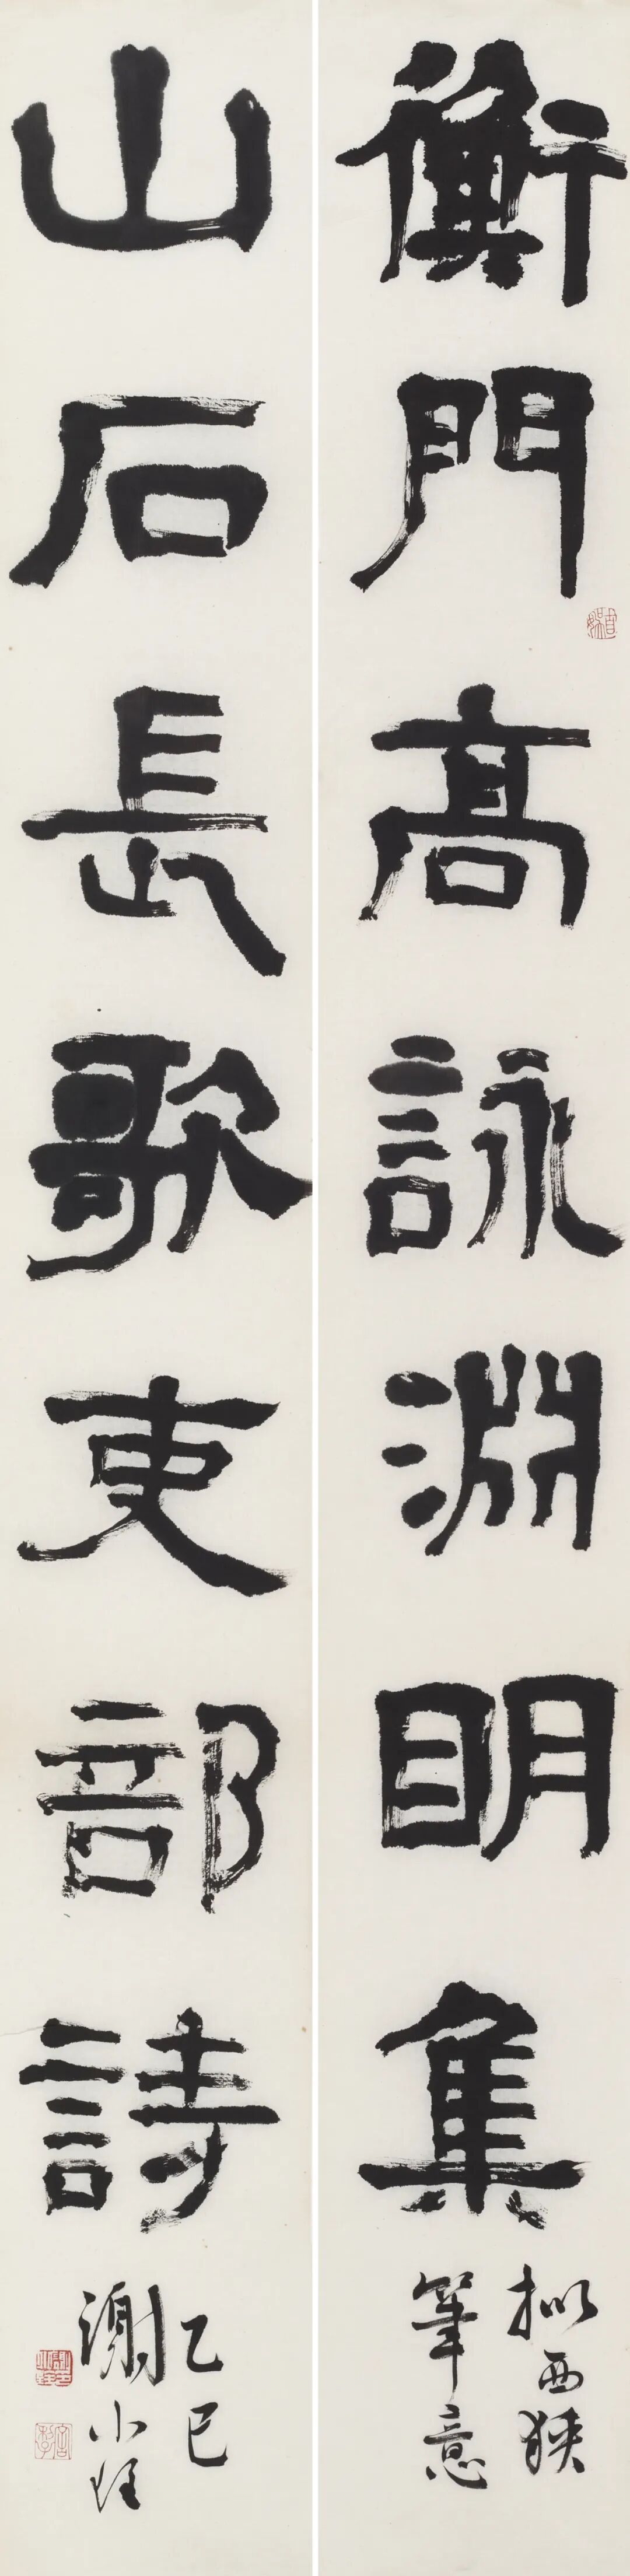 衡門高詠淵明集
拟西狹
筆意
山石長歌吏部詩
乙巳
謝小